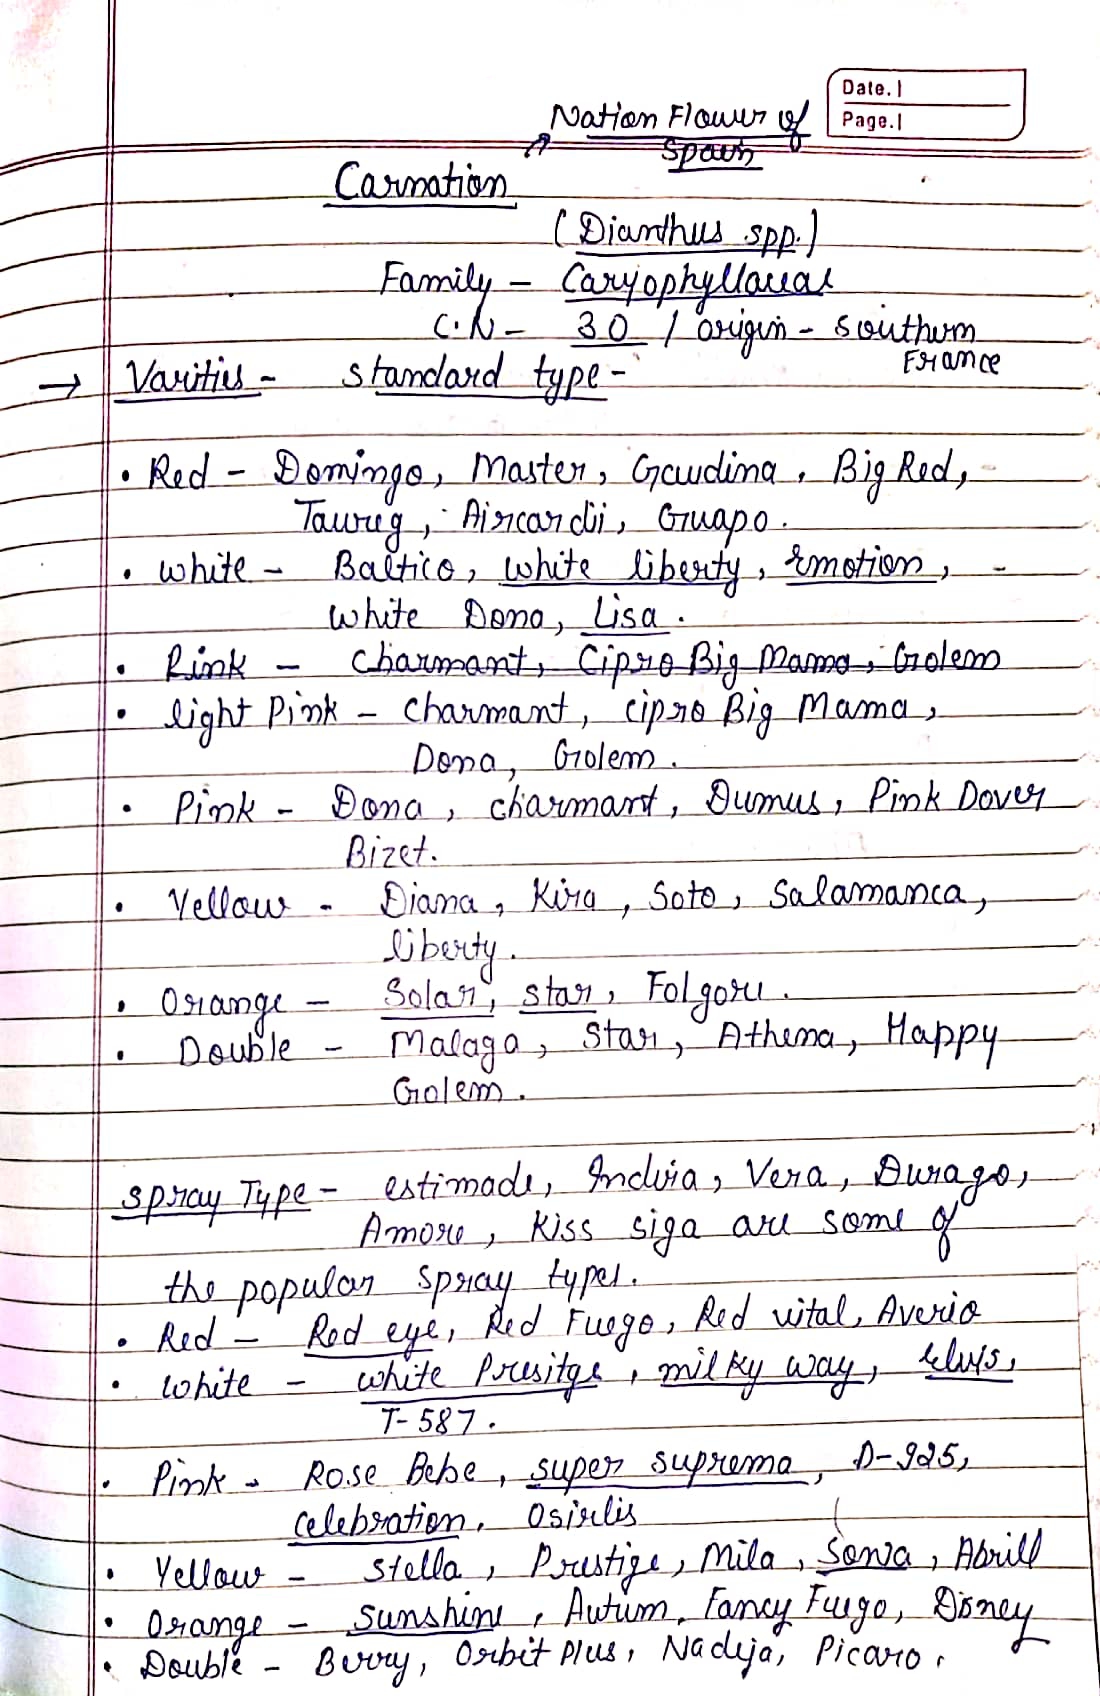 Date.
Page.
Nation Flower of
Spain
Carnation
(Dianthus spp.)
Family - Caryophyllaceae
C.N - 30 / origin - southern
France
→ Varities - standard type -
• Red - Domingo, Master, Gaudina, Big Red,
Taureg, Aircardii, Gruapo.
• white - Baltico, white liberty, Emotion,
white Dona, Lisa.
• Pink - Charmant, Cipro Big Mama, Golem
• light Pink - Charmant, cipro Big Mama,
Dona, Golem.
• Pink - Dona, charmant, Dumus, Pink Dover
Bizet.
• Yellow - Diana, Kira, Soto, Salamanca,
liberty.
• Orange - Solar, star, Folgore.
• Double - Malaga, Star, Athena, Happy
Golem.
Spray Type - estimade, Indvia, Vera, Durago,
Amore, Kiss siga are some of
the popular spray types.
• Red - Red eye, Red Fuego, Red vital, Averio
• white - white Presitge, milky way, Elvis,
T-587.
• Pink - Rose Bebe, super suprema, D-925,
celebration, Osirlis
• Yellow - Stella, Prestige, Mila, Sonia, Abrill
• Orange - Sunshine, Autum, Fancy Fuego, Disney
• Double - Berry, Orbit Plus, Nadeja, Picaro.